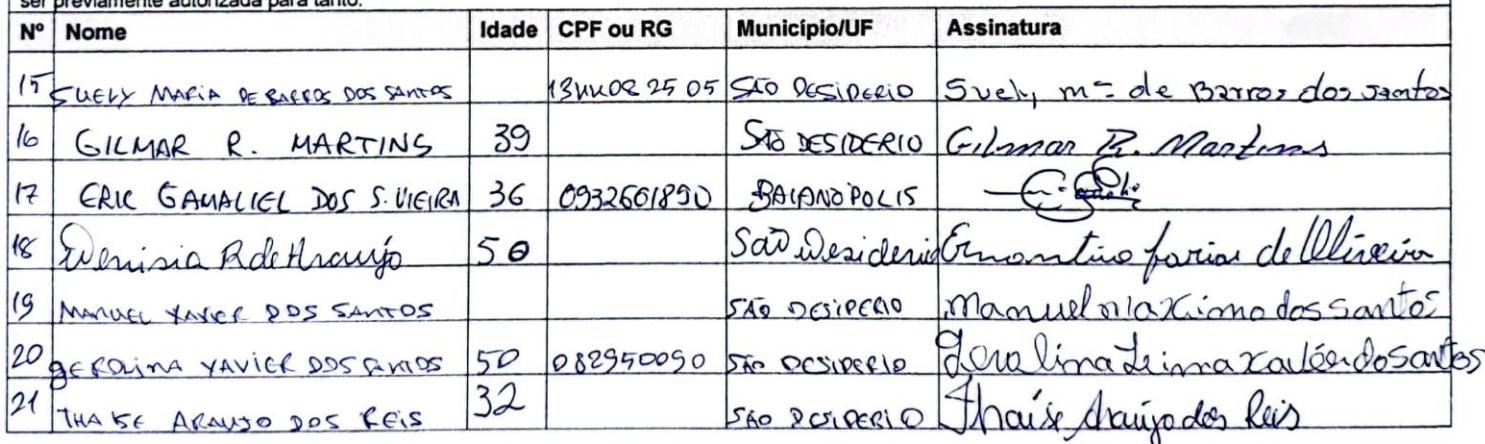 ser previamente autorizada para tanto.
Nº Nome Idade CPF ou RG Município/UF Assinatura
15 SUELY MARIA DE BARROS DOS SANTOS 1344082505 SÃO DESIDERIO Suely mª de Barros dos Santos
16 GILMAR R. MARTINS 39 SÃO DESIDERIO Gilmar R. Martins
17 ERIC GAMALIEL DOS S. VIEIRA 36 0932661890 BAIANÓPOLIS
18 Denisia R de Araujo 50 São Desiderio farias de Oliveira
19 MANUEL XAVIER DOS SANTOS SÃO DESIDERIO Manuel Maximo dos Santos
20 GEROLINA XAVIER DOS SANTOS 50 082950090 SÃO DESIDERIO dos Santos
21 THAISE ARAUJO DOS REIS 32 SÃO DESIDERIO Thaíse Araújo dos Reis